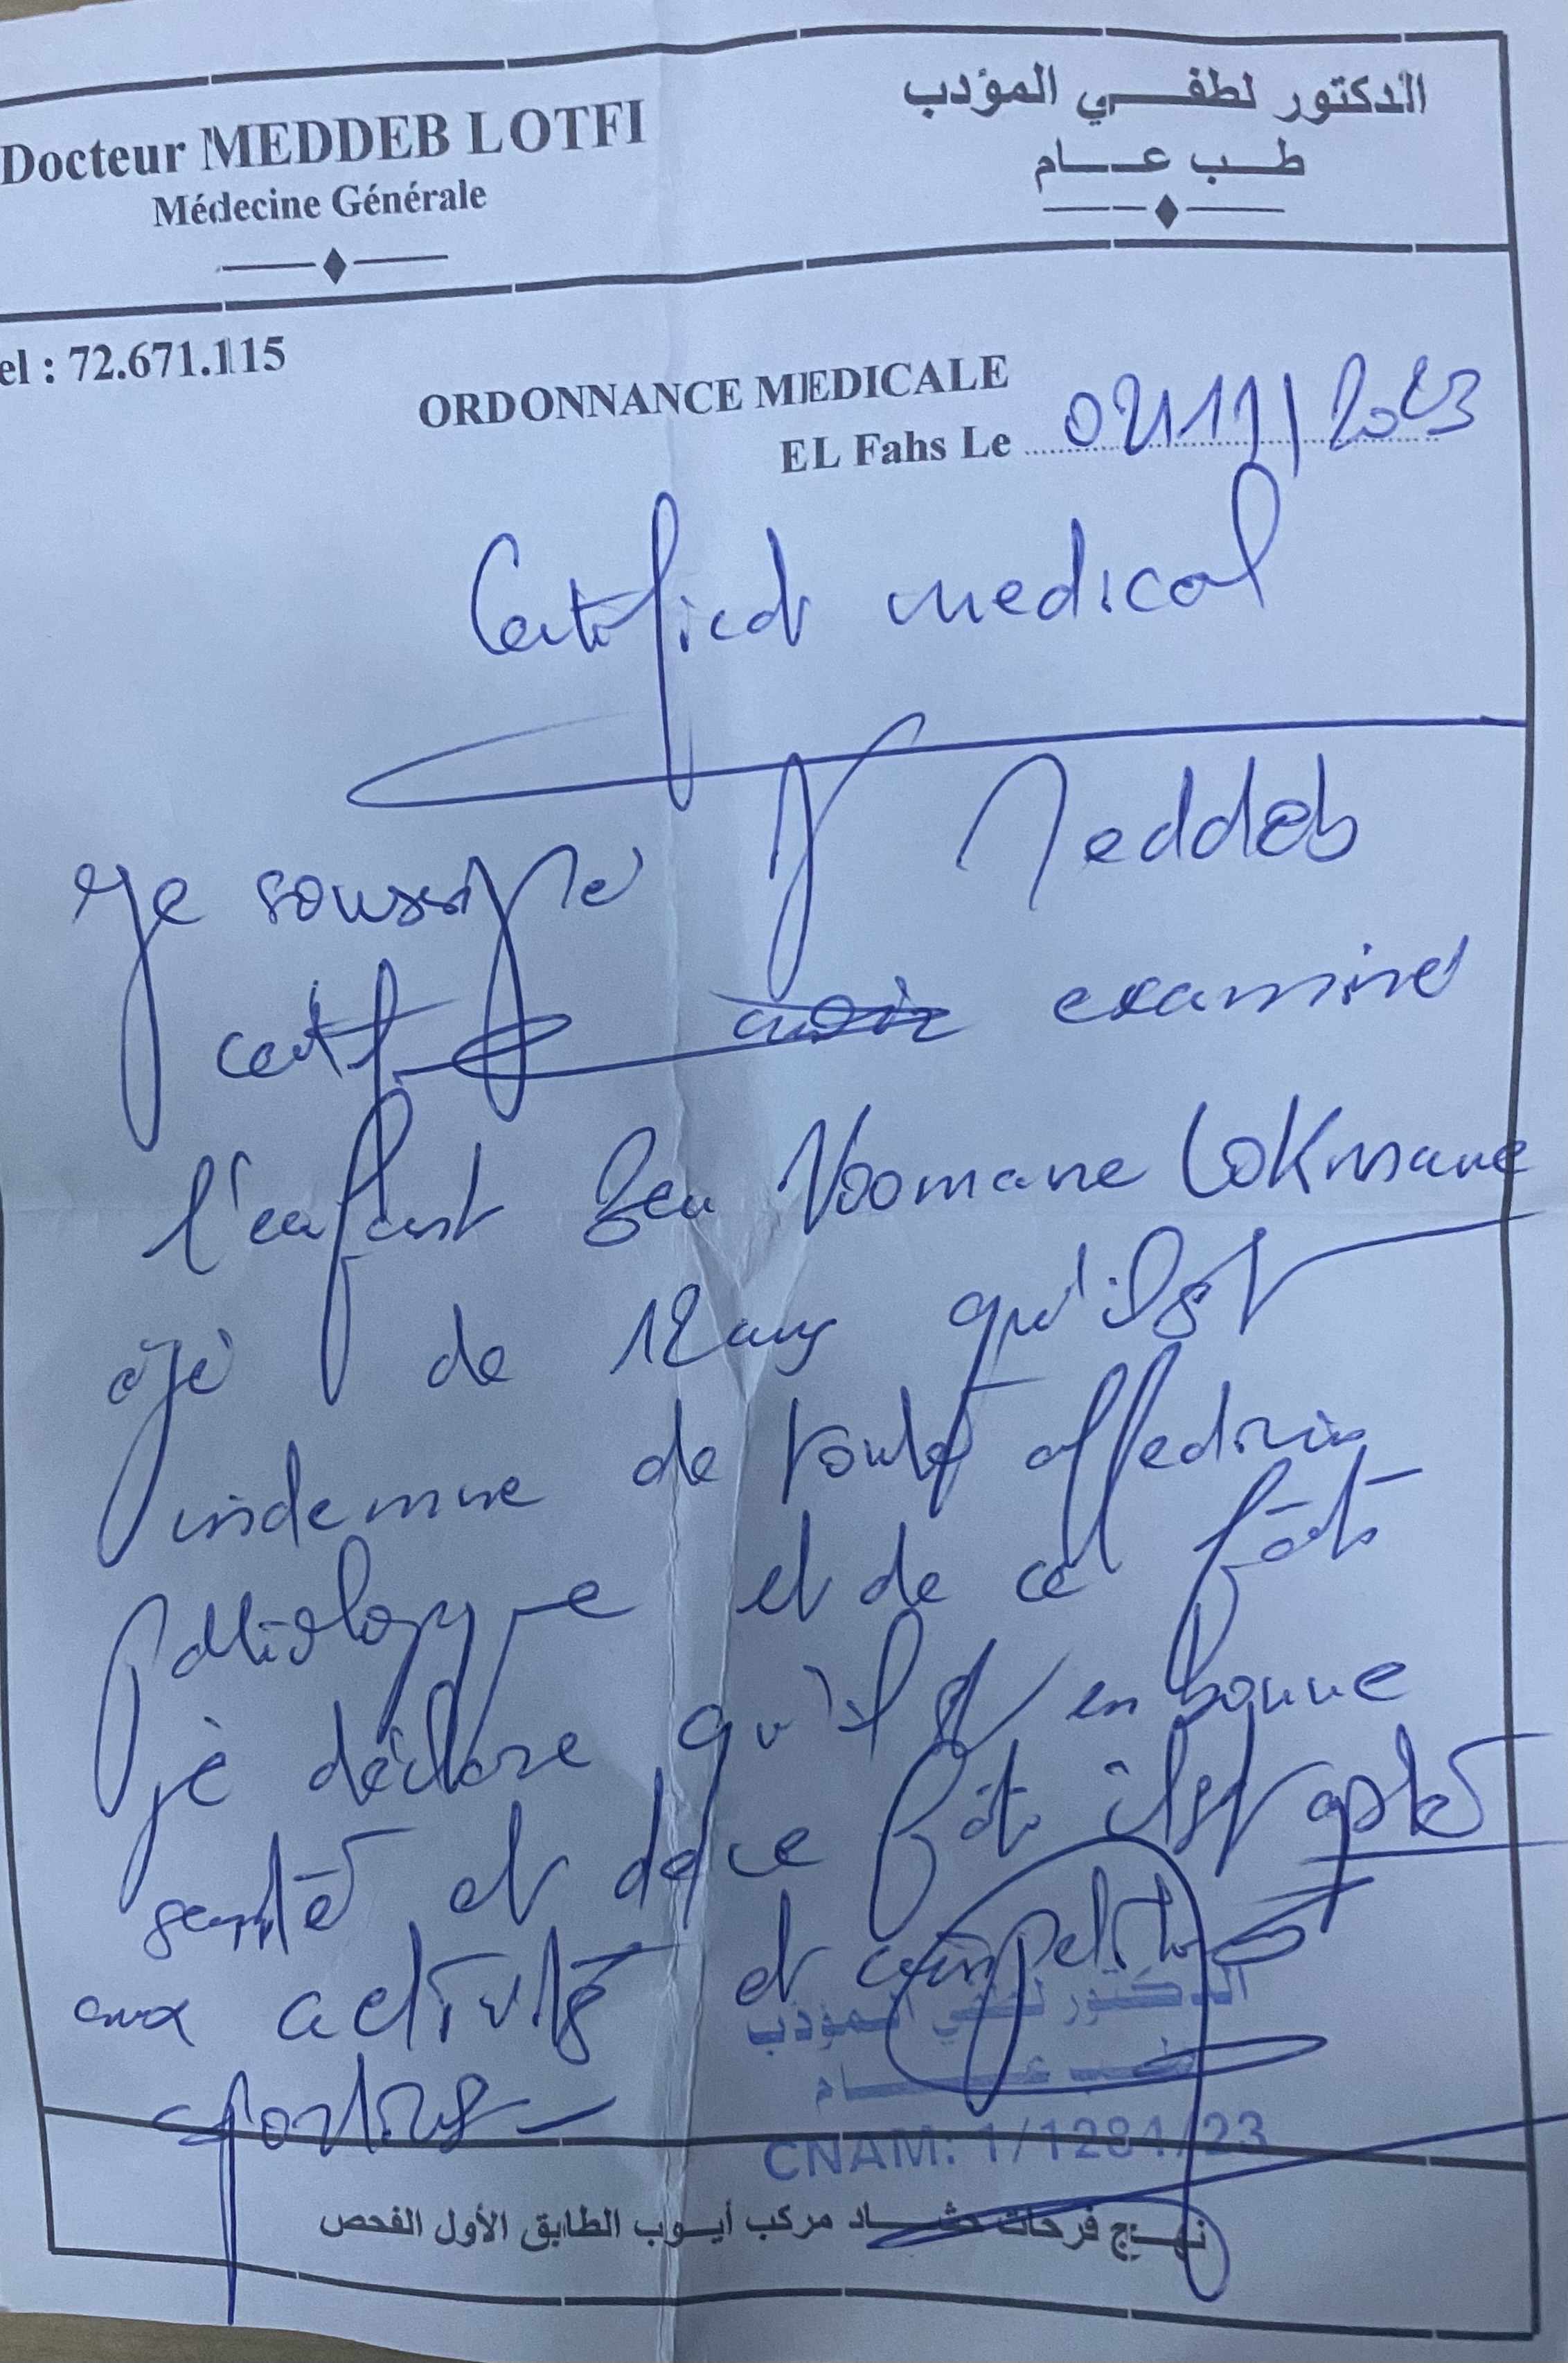 Docteur MEDDEB LOTFI
Médecine Générale
الدكتور لطفي المؤدب
طب عام
el : 72.671.115
ORDONNANCE MEDICALE
EL Fahs Le 02/11/2023
Certificat medical
Je soussigné Dr Meddeb
certifie avoir examiné
l'enfant Ben Noomane Lokmane
âgé de 12 ans qu'il est
indemne de toute affection
pathologique et de ce fait
je déclare qu'il est en bonne
santé et de ce fait il est apte
aux activités et compétitions
sportives
الدكتور لطفي المؤدب
طب عام
CNAM: 1/1281/23
نهج فرحات حشاد مركب أيوب الطابق الأول الفحص